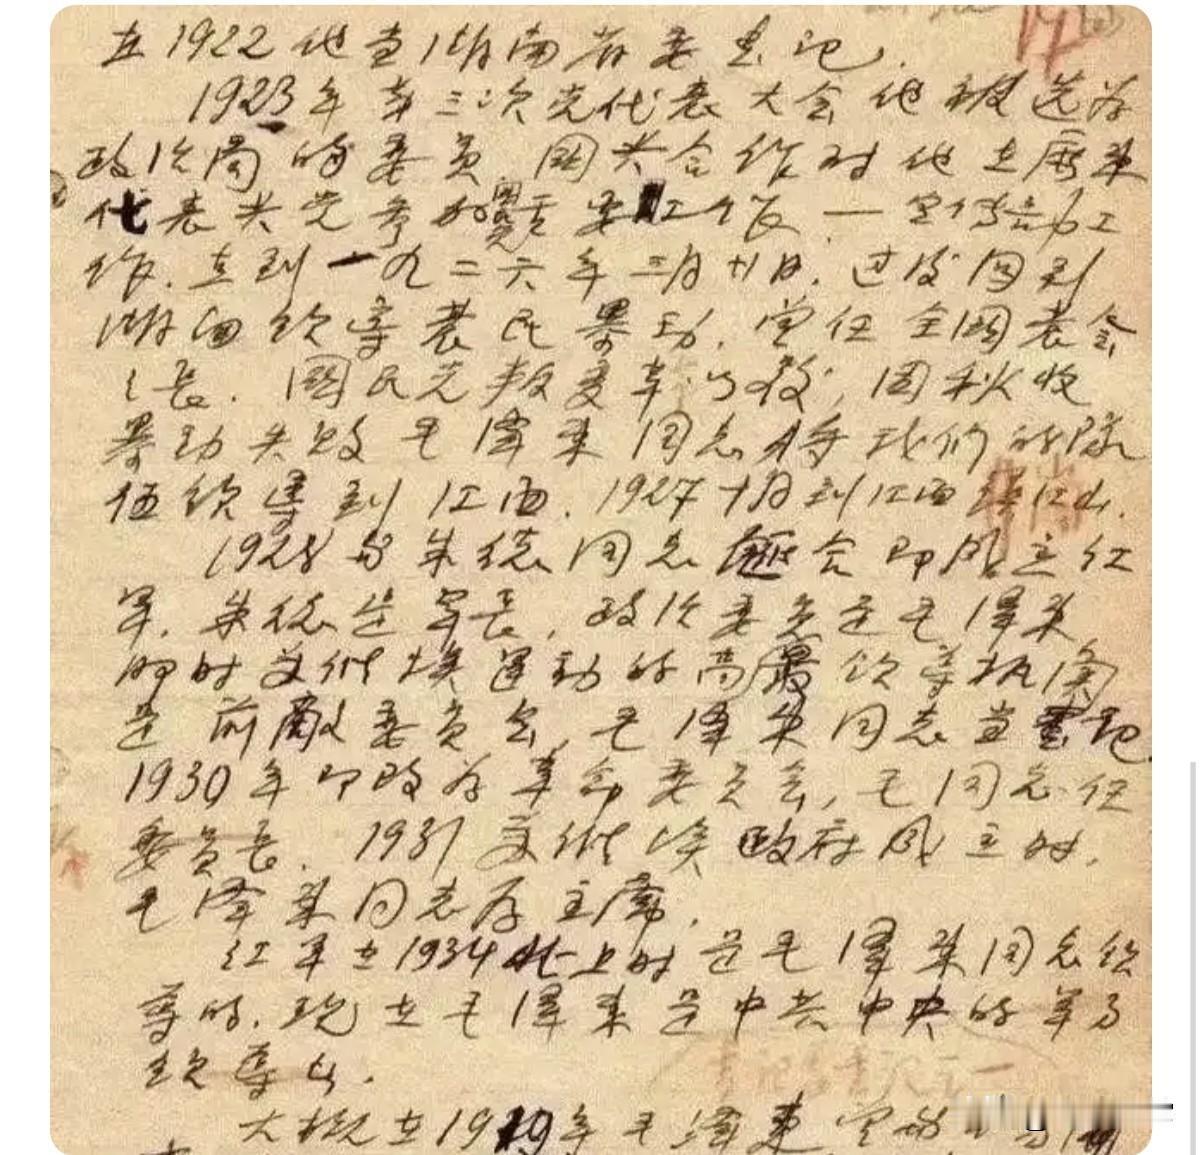 在1922他当湖南省委书记.
1923年第三次党代表大会他被选为
政治局的委员 国共合作时他在广东
代表共党参加国民党要工作.一宣传部工
作.直到一九二六年三月廿日.过后回到
湖南领导农民暴动.曾任全国农会
会长. 国民党叛变革命以后, 因秋收
暴动失败毛泽东同志将我们的队
伍领导到江西.1927十月到江西井岗山.
1928与朱德同志汇合即成立红
军, 朱德是军长, 政治委员是毛泽东
那时苏维埃运动的最高领导机关
是前敌委员会,毛泽东同志当书记
1930年即改为革命委员会,毛同志任
委员长. 1931苏维埃政府成立时,
毛泽东同志为主席.
红军在1934北上时是毛泽东同志领
导的.现在毛泽东是中共中央的军事
领导者.
书记处书记之一
大概在1919年毛泽东